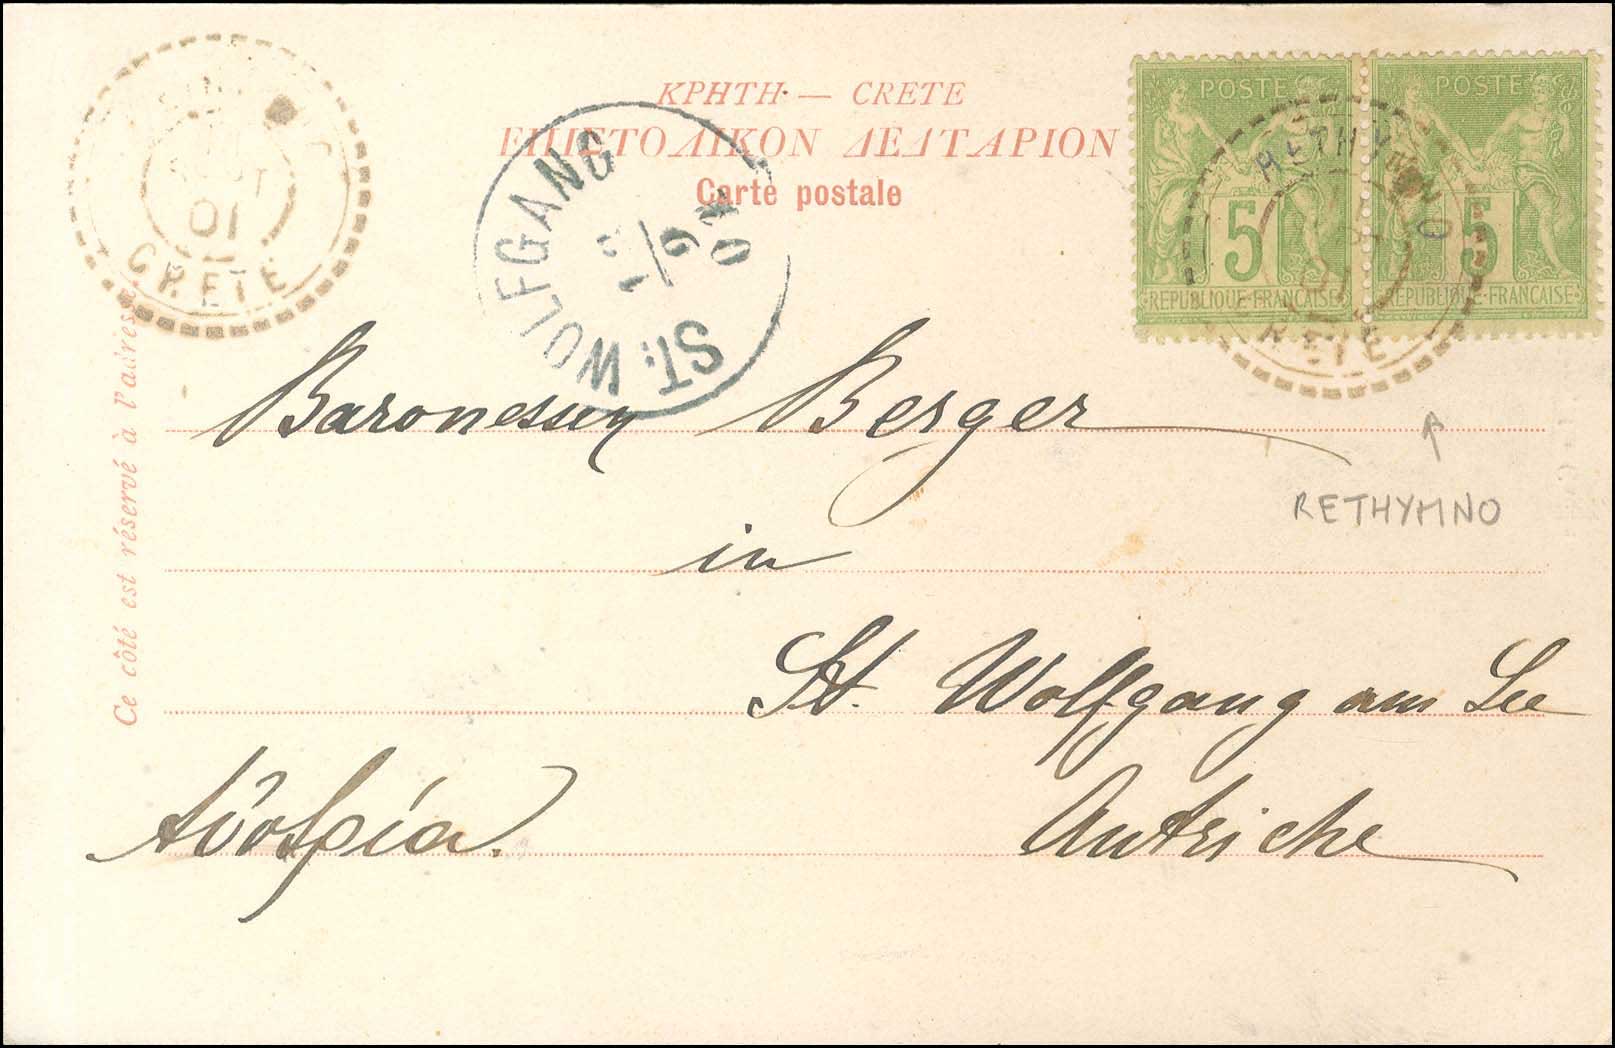 ΚΡΗΤΗ — CRETE
ΕΠΙΣΤΟΛΙΚΟΝ ΔΕΛΤΑΡΙΟΝ
Carte postale
Ce côté est réservé à l'adresse.
01
CRETE
ST. WOLFGANG
1/9
01
POSTE
5
REPUBLIQUE FRANÇAISE
POSTE
5
REPUBLIQUE FRANÇAISE
RETHYMNO
01
CRETE
RETHYMNO
Baronessen Berger
in
St. Wolfgang am See
Autriche
Αὐστρία.